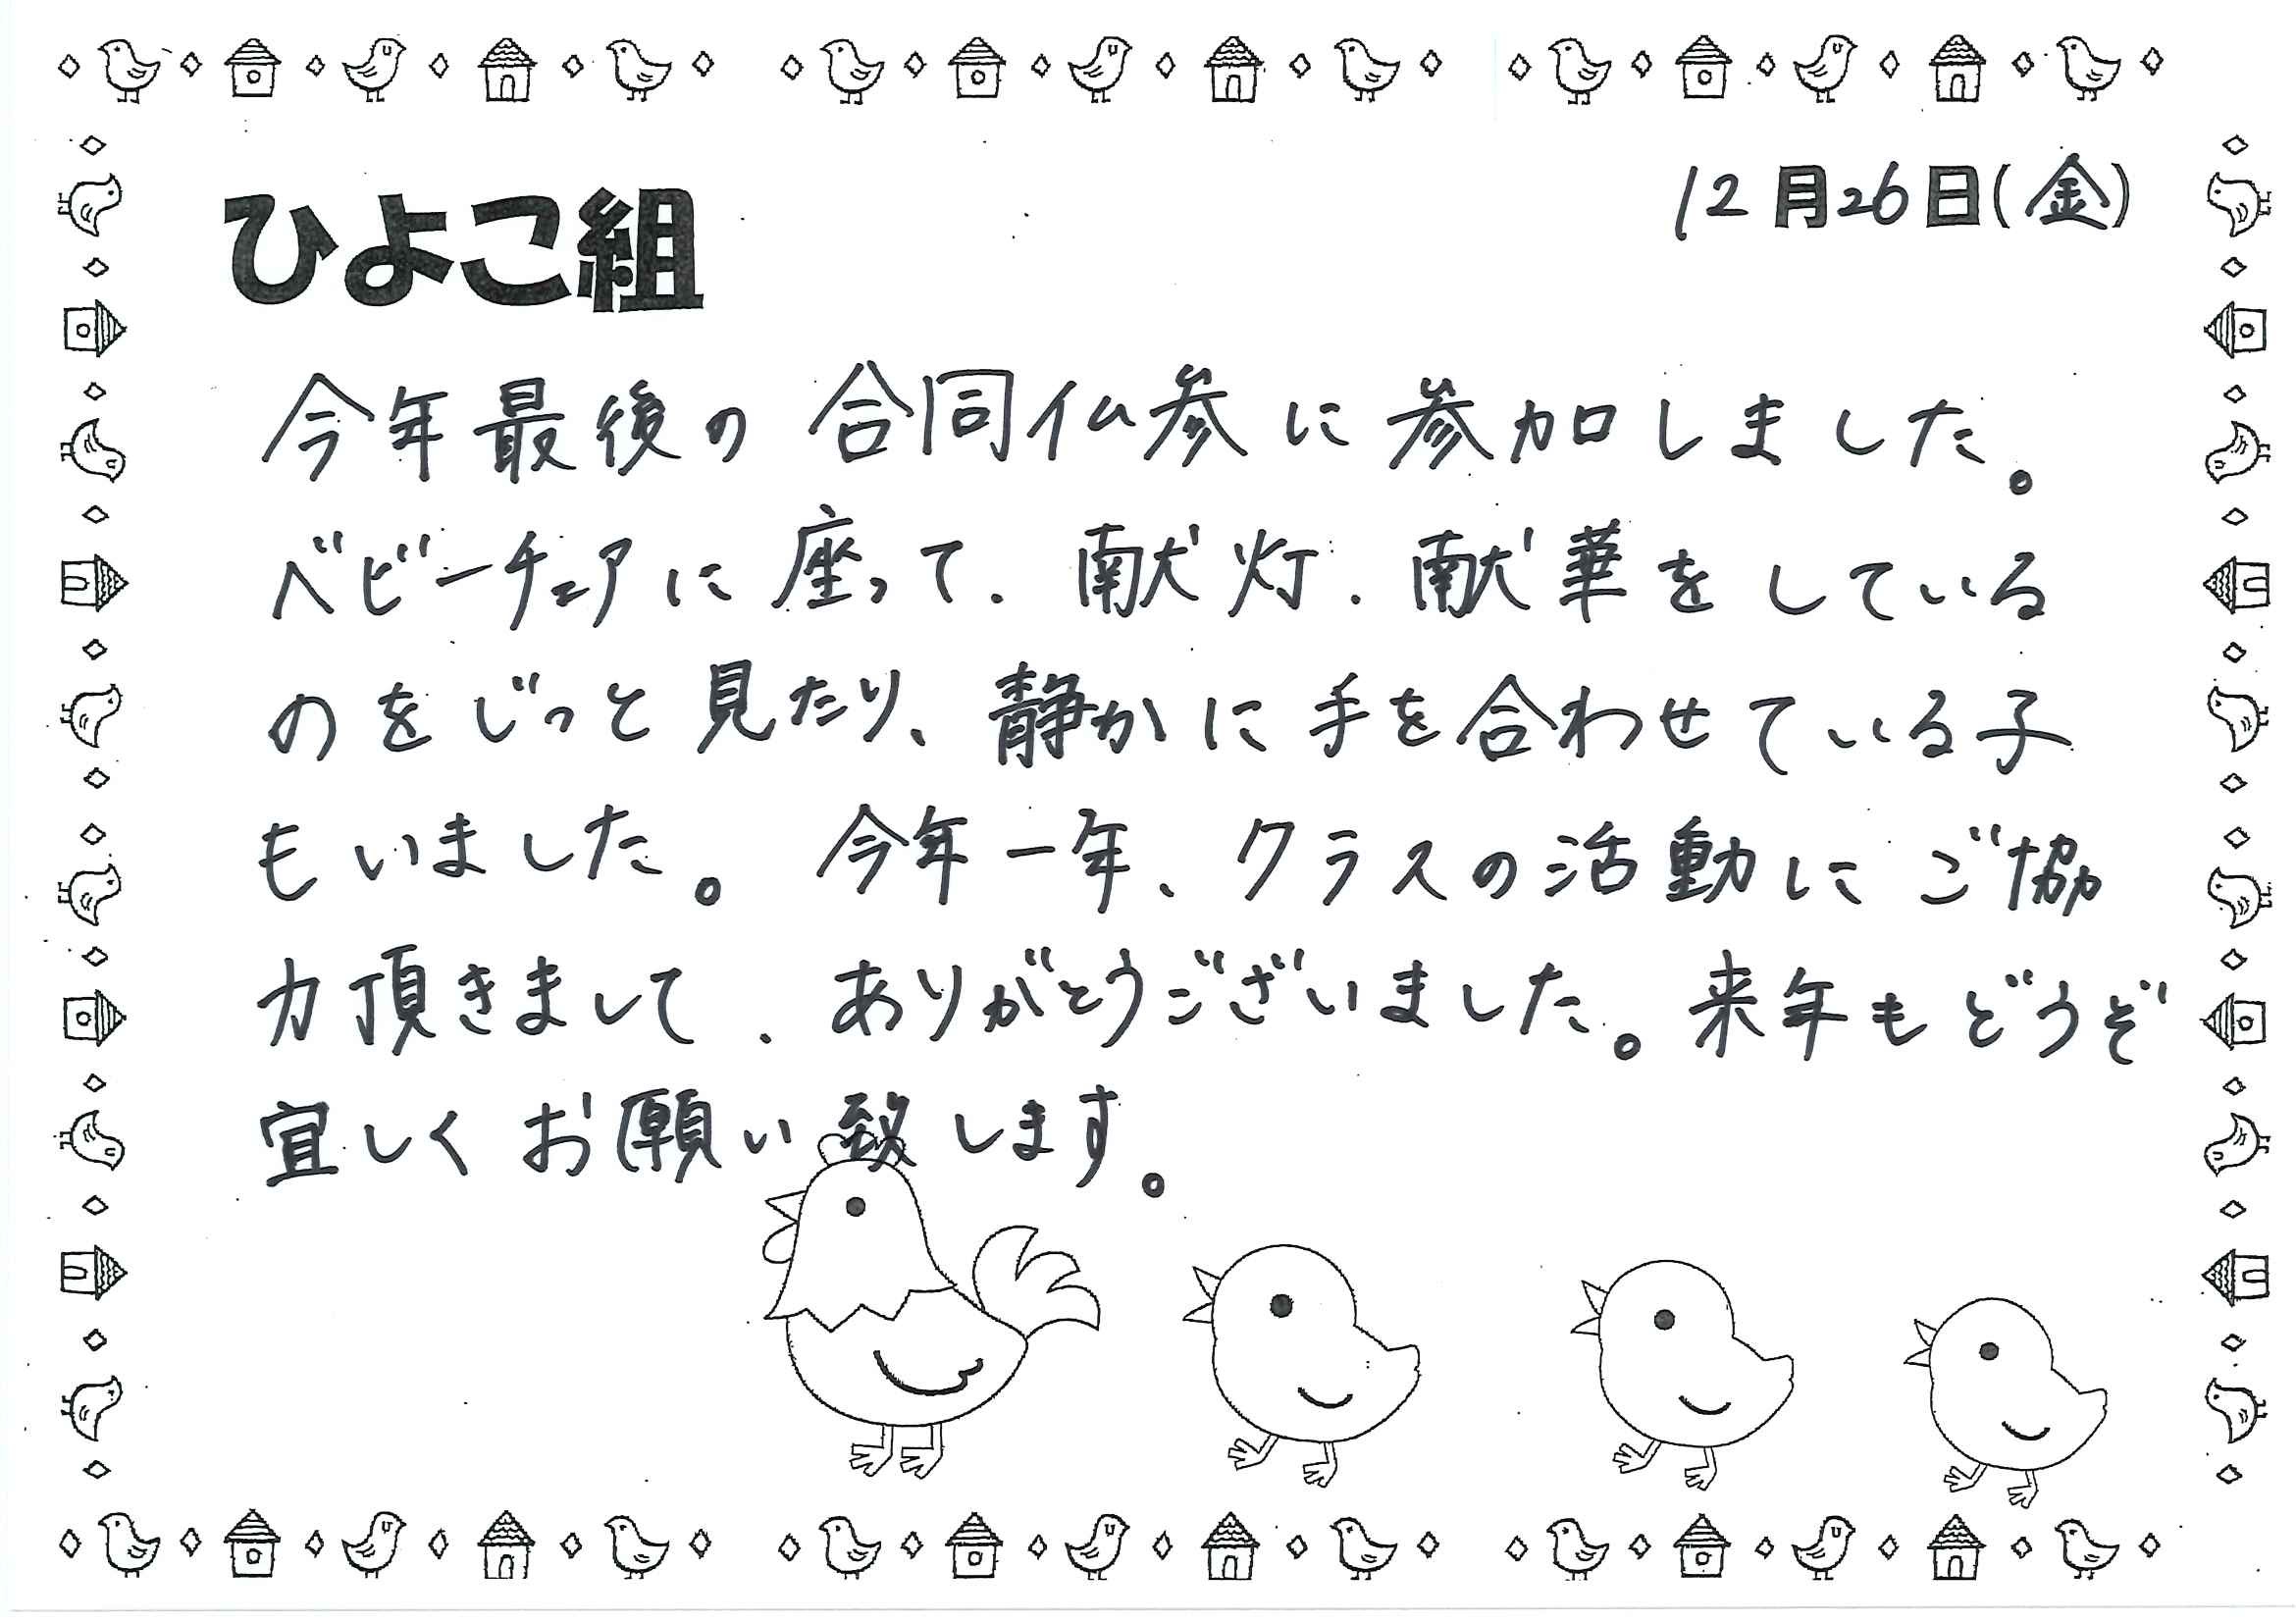 12月26日(金)
ひよこ組
今年最後の合同仏参に参加しました。
ベビーチェアに座って、献灯、献華をしている
のをじっと見たり、静かに手を合わせている子
もいました。今年一年、クラスの活動にご協
力頂きまして、ありがとうございました。来年もどうぞ
宜しくお願い致します。